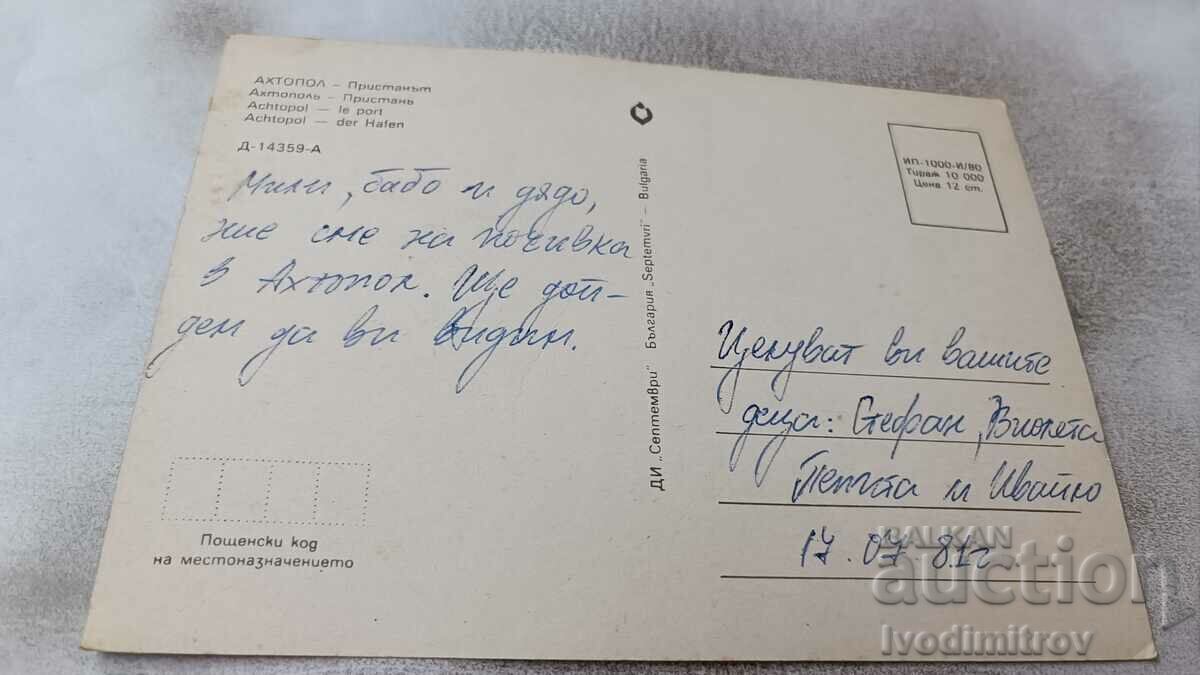 АХТОПОЛ – Пристанът
Ахтополь – Пристань
Achtopol — le port
Achtopol — der Hafen
Д-14359-А
Мили, бабо и дядо,
ние сме на почивка
в Ахтопол. Ще дой-
дем да ви видим.
Пощенски код
на местоназначението
ДИ „Септември" България „Septemvri" – Bulgaria
ИП-1000-И/80
Тираж 10 000
Цена 12 ст.
Целуват ви вашите
деца: Стефан, Виолета
Пепита и Ивайло
17.07 81г
BALKAN
auction
Ivodimitrov